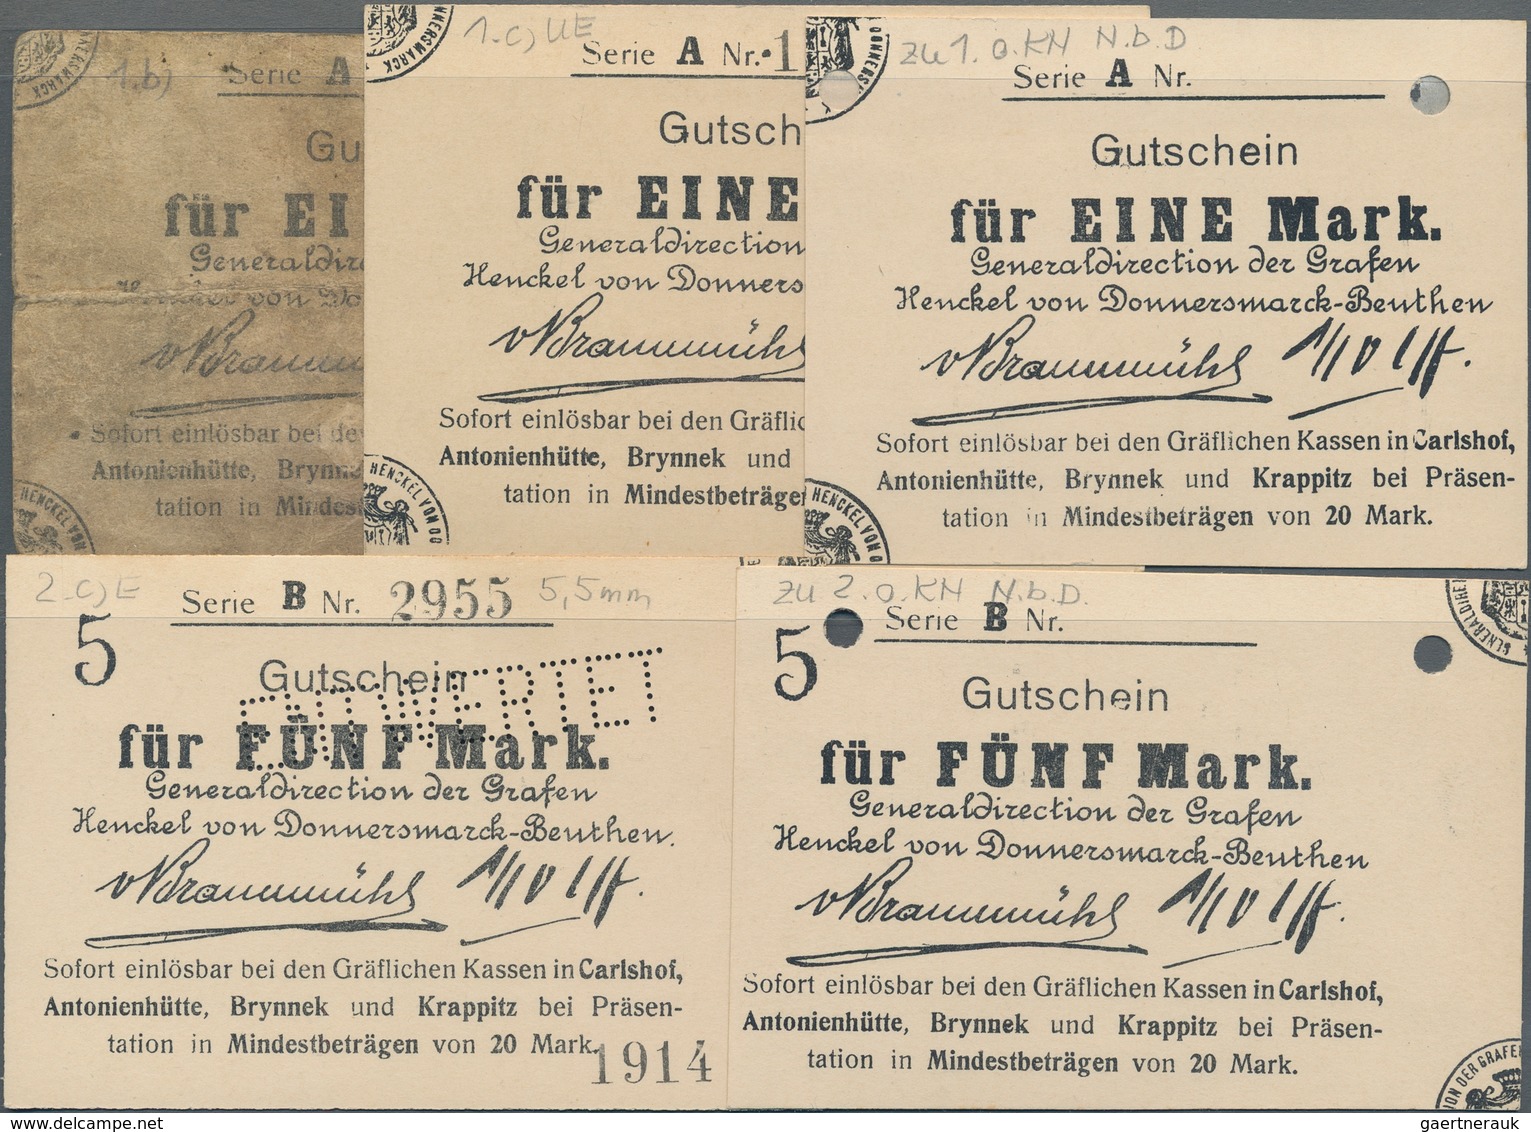 1.b)
Serie A
Gu
für EI
Generaldire
Henckel von Do
vBraunm
Sofort einlösbar bei de
Antonienhütte, Brynne
tation in Mindest
HENCKEL VON DO
NNERSMARCK
1.c) UE
Serie A Nr. 1
Gutsch
für EINE
Generaldirection
Henckel von Donners
vBraunmühl
Sofort einlösbar bei den Gräflic
Antonienhütte, Brynnek und
tation in Mindestbeträgen
HENCKEL VON DO
DONNERS
zu 1. o. KN N.b.D
Serie A Nr.
Gutschein
für EINE Mark.
Generaldirection der Grafen
Henckel von Donnersmarck-Beuthen
vBraunmühl
Sofort einlösbar bei den Gräflichen Kassen in Carlshof,
Antonienhütte, Brynnek und Krappitz bei Präsen-
tation in Mindestbeträgen von 20 Mark.
HENCKEL VON D
2.c) E
Serie B Nr. 2955 5,5mm
5
Gutschein
ENTWERTET
für FÜNF Mark.
Generaldirection der Grafen
Henckel von Donnersmarck-Beuthen.
vBraunmühl
Sofort einlösbar bei den Gräflichen Kassen in Carlshof,
Antonienhütte, Brynnek und Krappitz bei Präsen-
tation in Mindestbeträgen von 20 Mark.
1914
zu 2. o. KN N.b.D.
Serie B Nr.
5
GENERALDIREI
Gutschein
für FÜNF Mark.
Generaldirection der Grafen
Henckel von Donnersmarck-Beuthen
vBraunmühl
Sofort einlösbar bei den Gräflichen Kassen in Carlshof,
Antonienhütte, Brynnek und Krappitz bei Präsen-
tation in Mindestbeträgen von 20 Mark.
ION DER GRAFE
delcampe.net
gaertnerauk